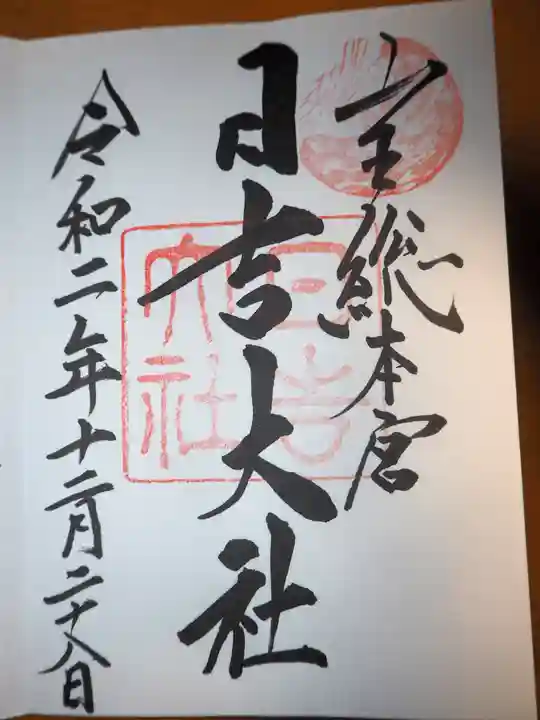 山王総本宮
日吉大社
日吉大社
令和二年十二月二十八日